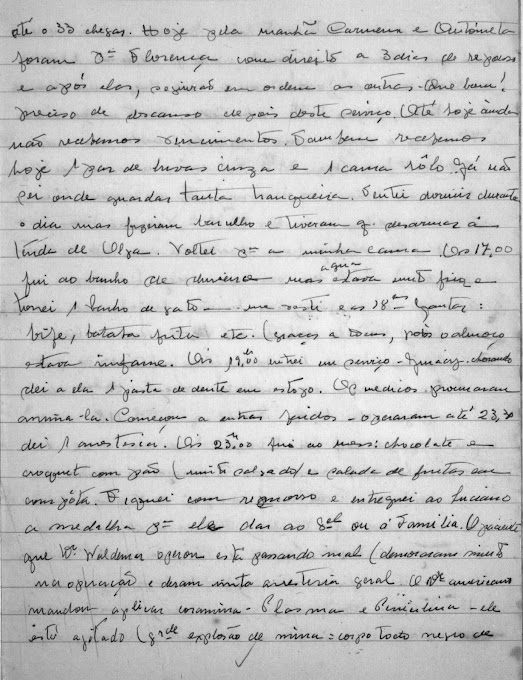 até o 33 chegar. Hoje pela manhã Carmem e Antonieta
foram pª Florença com direito a 3 dias de repouso
e após elas, seguirão em ordem as outras. Que bom!
preciso de descanso depois deste serviço. Até hoje ainda
não recebemos vencimentos. Tambem recebemos
hoje 1 par de luvas cinza e 1 cama rôlo. Já não
sei onde guardar tanta tranqueira. Tentei dormir durante
o dia mas fizeram barulho e tiveram q. desarmar a
tenda de Olga. Voltei pª a minha cama. Às 17,00
fui ao banho de chuveiro mas a agua estava muito fria e
tomei 1 banho de gato - me vesti e as 18 hs jantar:
bife, batata frita etc. (graças a Deus, pois o almoço
estava infame. Às 19,00 entrei em serviço - Juracy chorando
dei a ela 1 pasta de dente em estojo. Os medicos procuraram
anima-la. Começou a entrar feridos - operaram até 23,30
dei 1 anestesia. Às 23,00 fui ao mess: chocolate e
croquet com pão (muito salgado) e salada de frutas em
compóta. Fiquei com remorso e entreguei ao Luciano
a medalha pª ele dar ao cel ou á familia. O paciente
que Dr. Waldemar operou está passando mal (demoraram muito
na operação e deram muita anestesia geral. O Dr. americano
mandou aplicar coramina - Plasma e Penicilina - ele
está agitado (grde explosão de mina = corpo todo negro de